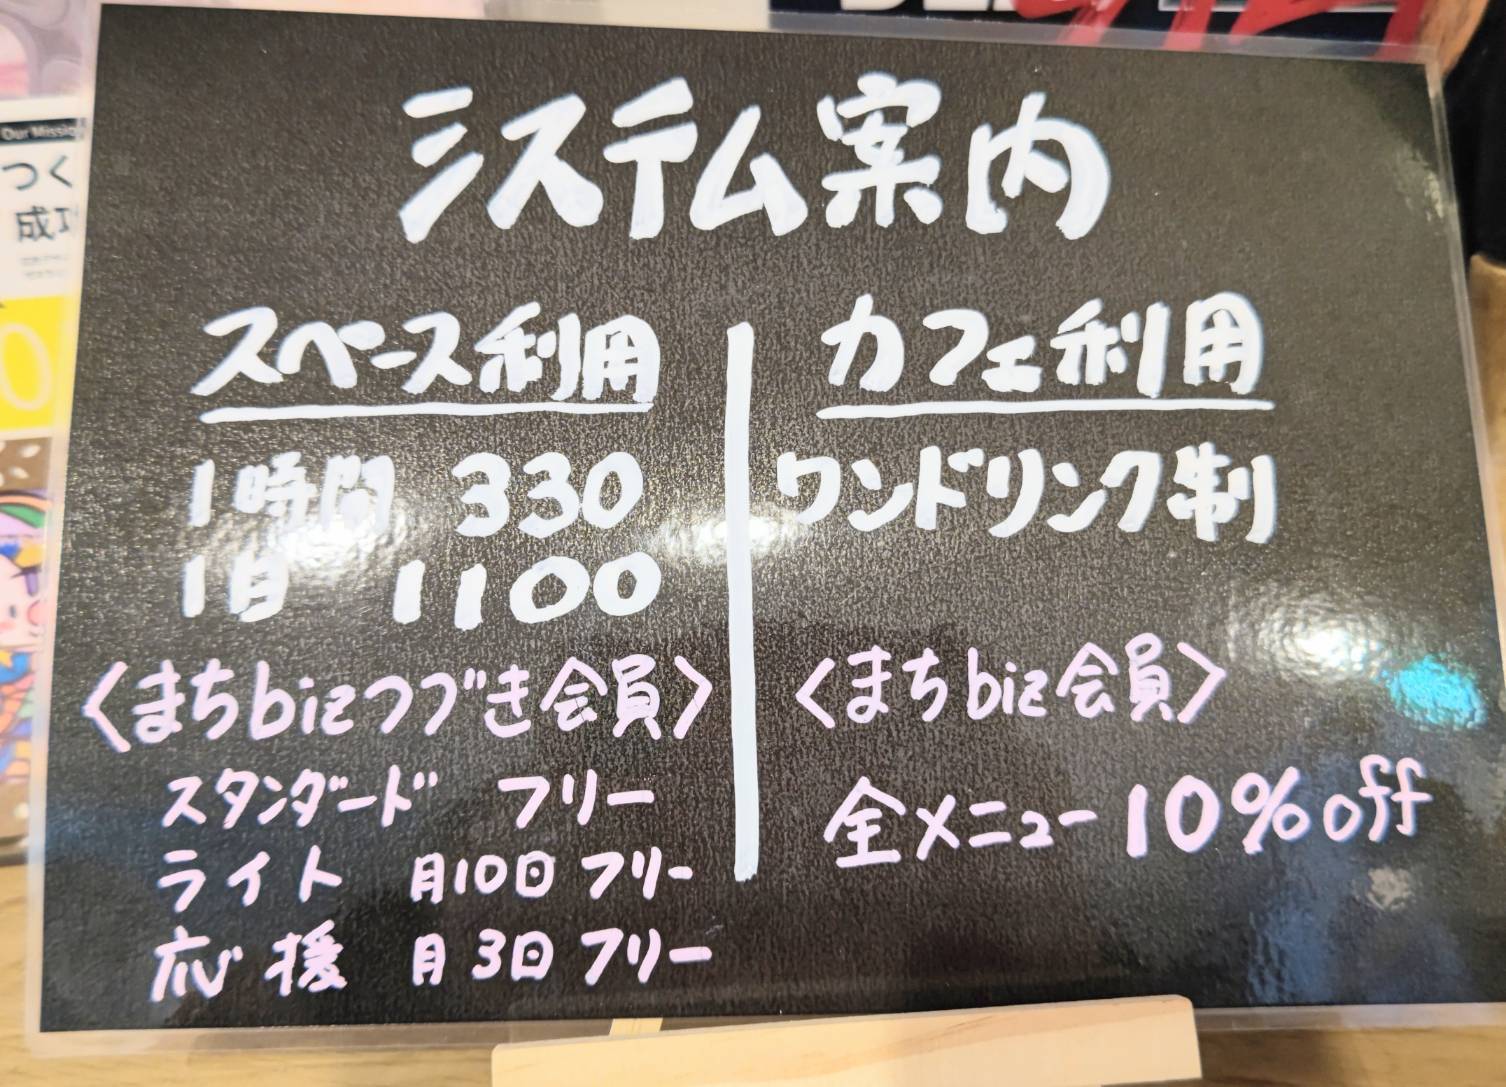 システム案内
スペース利用
1時間 330
1日 1100
〈まちbizつづき会員〉
スタンダード フリー
ライト 月10日 フリー
応援 月3日 フリー
カフェ利用
ワンドリンク制
〈まちbiz会員〉
全メニュー 10%off
Our Missio
つく
成功